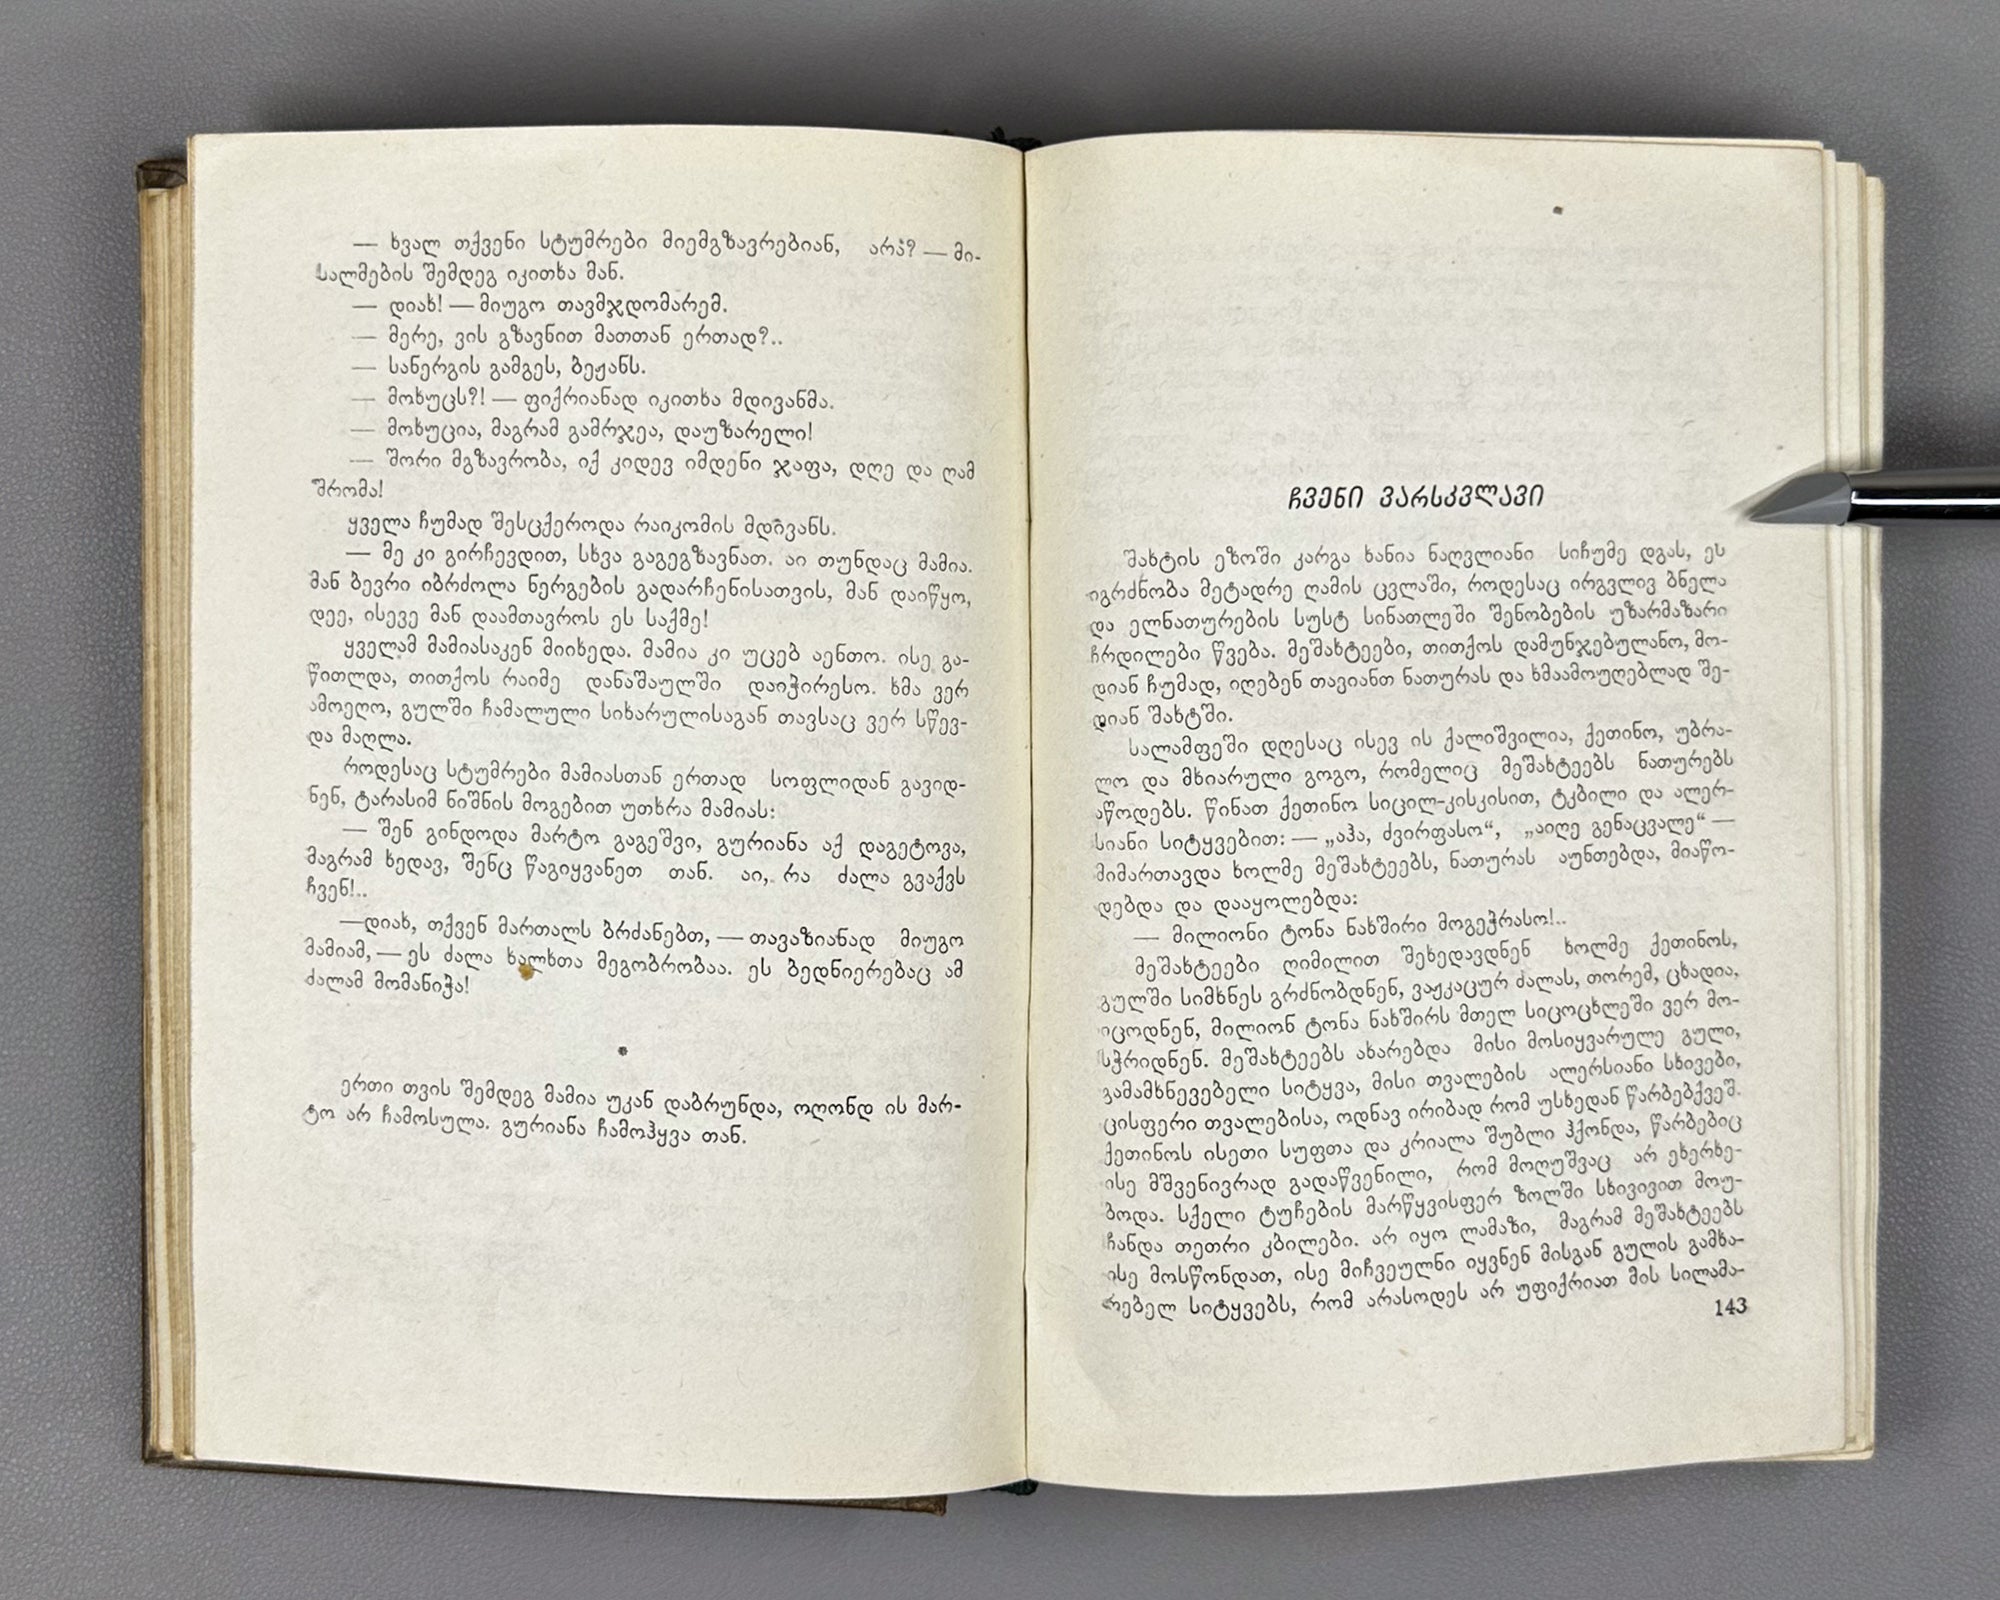 — ხვალ თქვენი სტუმრები მიემგზავრებიან, არა? — მი-
სალმების შემდეგ იკითხა მან.
— დიახ! — მიუგო თავმჯდომარემ.
— მერე, ვის გზავნით მათთან ერთად?..
— სანერგის გამგეს, ბეჟანს.
— მოხუცს?! — ფიქრიანად იკითხა მდივანმა.
— მოხუცია, მაგრამ გამრჯეა, დაუზარელი!
— შორი მგზავრობა, იქ კიდევ იმდენი ჯაფა, დღე და ღამ
შრომა!
ყველა ჩუმად შესცქეროდა რაიკომის მდივანს.
— მე კი გირჩევდით, სხვა გაგეგზავნათ. აი თუნდაც მამია.
მან ბევრი იბრძოლა ნერგების გადარჩენისათვის, მან დაიწყო,
დეე, ისევე მან დაამთავროს ეს საქმე!
ყველამ მამიასაკენ მიიხედა. მამია კი უცებ აენთო. ისე გა-
წითლდა, თითქოს რაიმე დანაშაულში დაიჭირესო. ხმა ვერ
ამოეღო, გულში ჩამალული სიხარულისაგან თავსაც ვერ სწევ-
და მაღლა.
როდესაც სტუმრები მამიასთან ერთად სოფლიდან გავიდ-
ნენ, ტარასიმ ნიშნის მოგებით უთხრა მამიას:
— შენ გინდოდა მარტო გაგეშვი, გურიანა აქ დაგეტოვა,
მაგრამ ხედავ, შენც წაგიყვანეთ თან. აი, რა ძალა გვაქვს
ჩვენ!..
—დიახ, თქვენ მართალს ბრძანებთ, — თავაზიანად მიუგო
მამიამ, — ეს ძალა ხალხთა მეგობრობაა. ეს ბედნიერებაც ამ
ძალამ მომანიჭა!
*
ერთი თვის შემდეგ მამია უკან დაბრუნდა, ოღონდ ის მარ-
ტო არ ჩამოსულა. გურიანა ჩამოჰყვა თან.
ჩვენი ვარსკვლავი
შახტის ეზოში კარგა ხანია ნაღვლიანი სიჩუმე დგას, ეს
იგრძნობა მეტადრე ღამის ცვლაში, როდესაც ირგვლივ ბნელა
და ელნათურების სუსტ სინათლეში შენობების უზარმაზარი
ჩრდილები წვება. მეშახტეები, თითქოს დამუნჯებულანო, მო-
დიან ჩუმად, იღებენ თავიანთ ნათურას და ხმაამოუღებლად შე-
დიან შახტში.
სალამფეში დღესაც ისევ ის ქალიშვილია, ქეთინო, უბრა-
ლო და მხიარული გოგო, რომელიც მეშახტეებს ნათურებს
აწოდებს. წინათ ქეთინო სიცილ-კისკისით, ტკბილი და ალერ-
სიანი სიტყვებით: — „აჰა, ძვირფასო“, „აიღე გენაცვალე“ —
მიმართავდა ხოლმე მეშახტეებს, ნათურას აუნთებდა, მიაწო-
დებდა და დააყოლებდა:
— მილიონი ტონა ნახშირი მოგეჭრასო!..
მეშახტეები ღიმილით შეხედავდნენ ხოლმე ქეთინოს,
გულში სიმხნეს გრძნობდნენ, ვაჟკაცურ ძალას, თორემ, ცხადია,
იცოდნენ, მილიონ ტონა ნახშირს მთელ სიცოცხლეში ვერ მო-
სჭრიდნენ. მეშახტეებს ახარებდა მისი მოსიყვარულე გული,
გამამხნევებელი სიტყვა, მისი თვალების ალერსიანი სხივები,
ცისფერი თვალებისა, ოდნავ ირიბად რომ უსხედან წარბებქვეშ.
ქეთინოს ისეთი სუფთა და კრიალა შუბლი ჰქონდა, წარბებიც
ისე მშვენივრად გადაწვენილი, რომ მოღუშვაც არ ეხერხე-
ბოდა. სქელი ტუჩების მარწყვისფერ ზოლში სხივივით მოუ-
ჩანდა თეთრი კბილები. არ იყო ლამაზი, მაგრამ მეშახტეებს
ისე მოსწონდათ, ისე მიჩვეულნი იყვნენ მისგან გულის გამხა-
რებელ სიტყვებს, რომ არასოდეს არ უფიქრიათ მის სილამა-
143